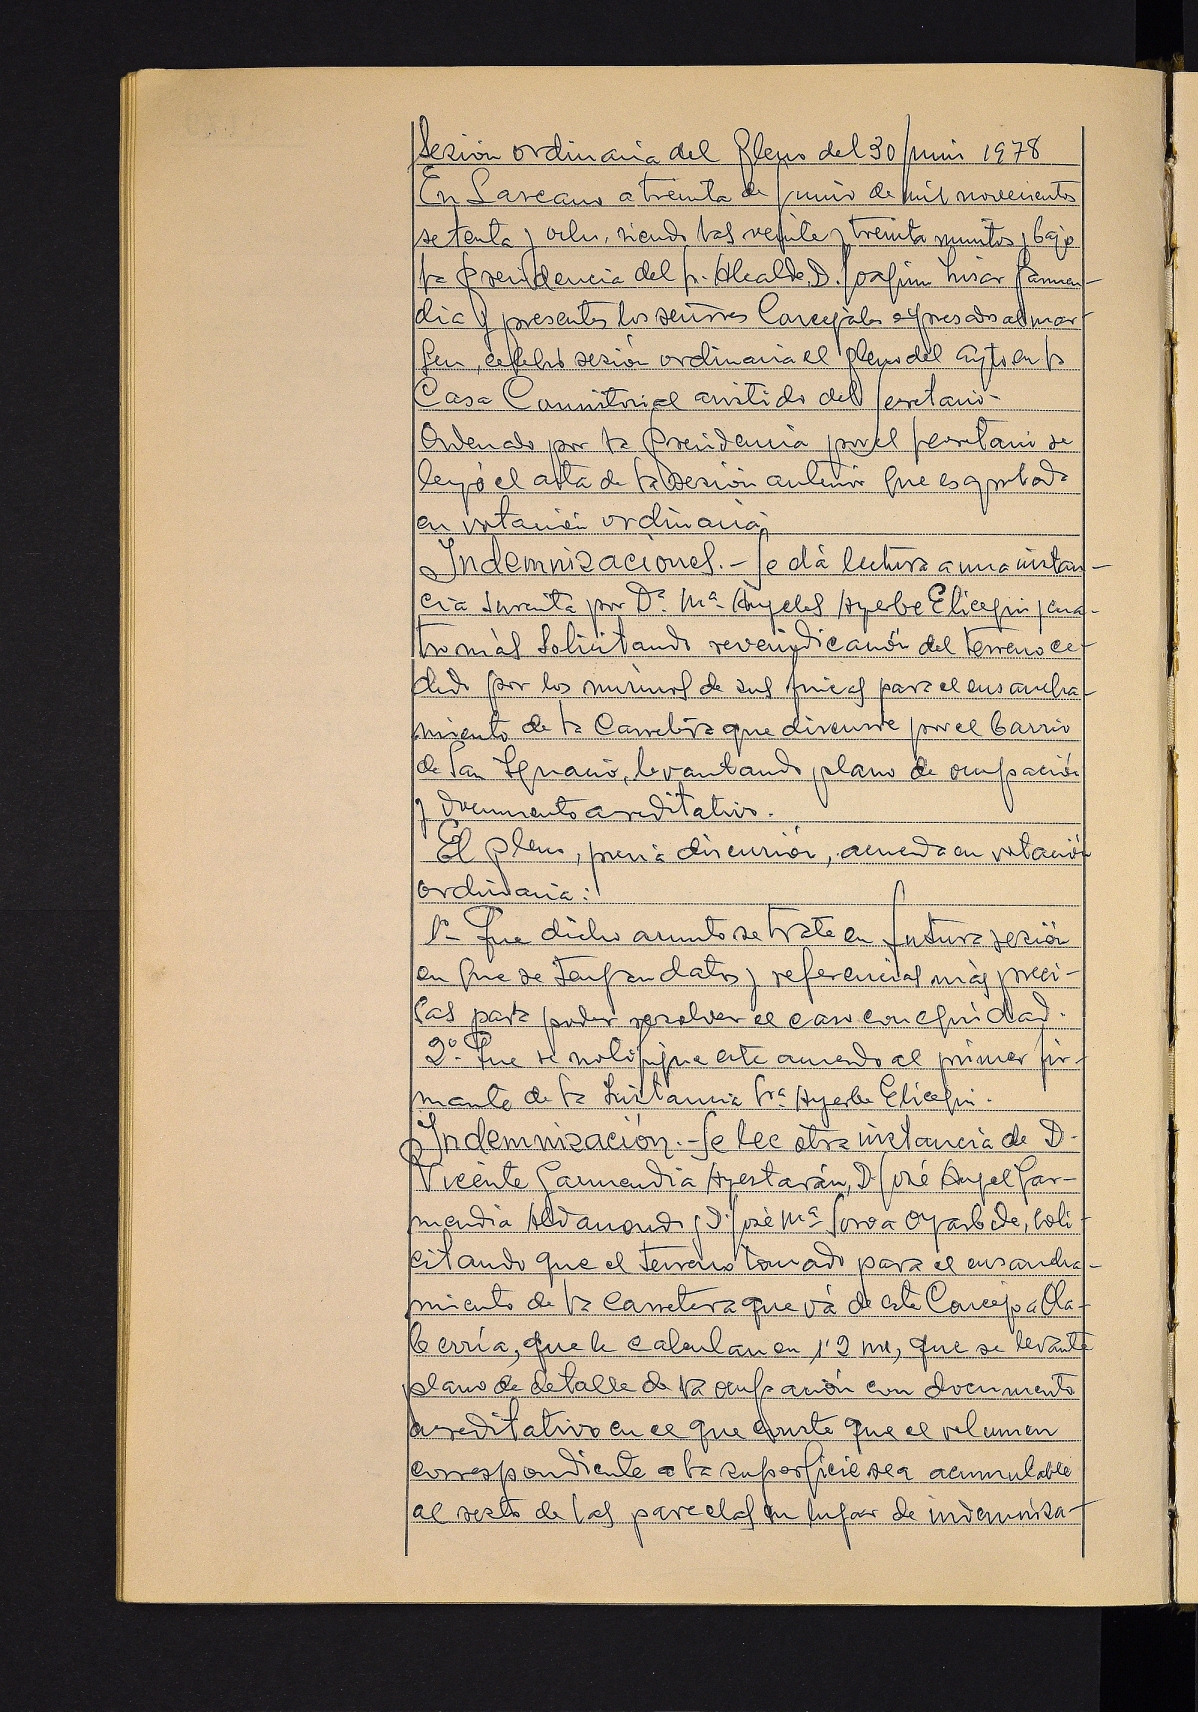 Sesión ordinaria del Pleno del 30 Junio 1978
En Lazcano a treinta de junio de mil novecientos
setenta y ocho, siendo las veinte y treinta minutos, y bajo
la Presidencia del Sr. Alcalde, D. Joaquin Garmen-
dia y presentes los señores Concejales expresados al mar-
gen, celebró sesión ordinaria el Pleno del Ayto en la
Casa Consistorial asistido del Secretario-
Ordenado por la Presidencia por el Secretario se
leyó el acta de la sesión anterior que es aprobada
en votación ordinaria;
Indemnizaciones.- Se dá lectura a una instan-
cia suscrita por Dª. Mª Angeles Ayerbe Elicegui y cua-
tro más solicitando reveindicación del terreno ce-
dido por los mismos de sus fincas para el ensancha-
miento de la Carretera que discurre por el barrio
de San Ignacio, levantando plano de ocupación
y documento acreditativo.
El pleno, previa discusión, acuerda en votación
ordinaria:
1º- Que dicho asunto se trate en futura sesión
en que se tengan datos y referencias más preci-
sas para poder resolver el caso con equidad.
2º. Que se notifique este acuerdo al primer fir-
mante de la Instancia Srª Ayerbe Elicegui.
Indemnización.- Se lee otra instancia de D.
Vicente Garmendia Ayestarán, D. José Angel Gar-
mendia Aldanondo y D. José Mª Soroa Oyarbide, soli-
citando que el terreno tomado para el ensancha-
miento de la carretera que vá de este Concejo a Ola-
berría, que le calculan en 1'2 m, que se levante
plano de detalle de la ocupación con documento
acreditativo en el que conste que el volumen
correspondiente a la superficie sea acumulable
al resto de las parcelas en lugar de indemniza-